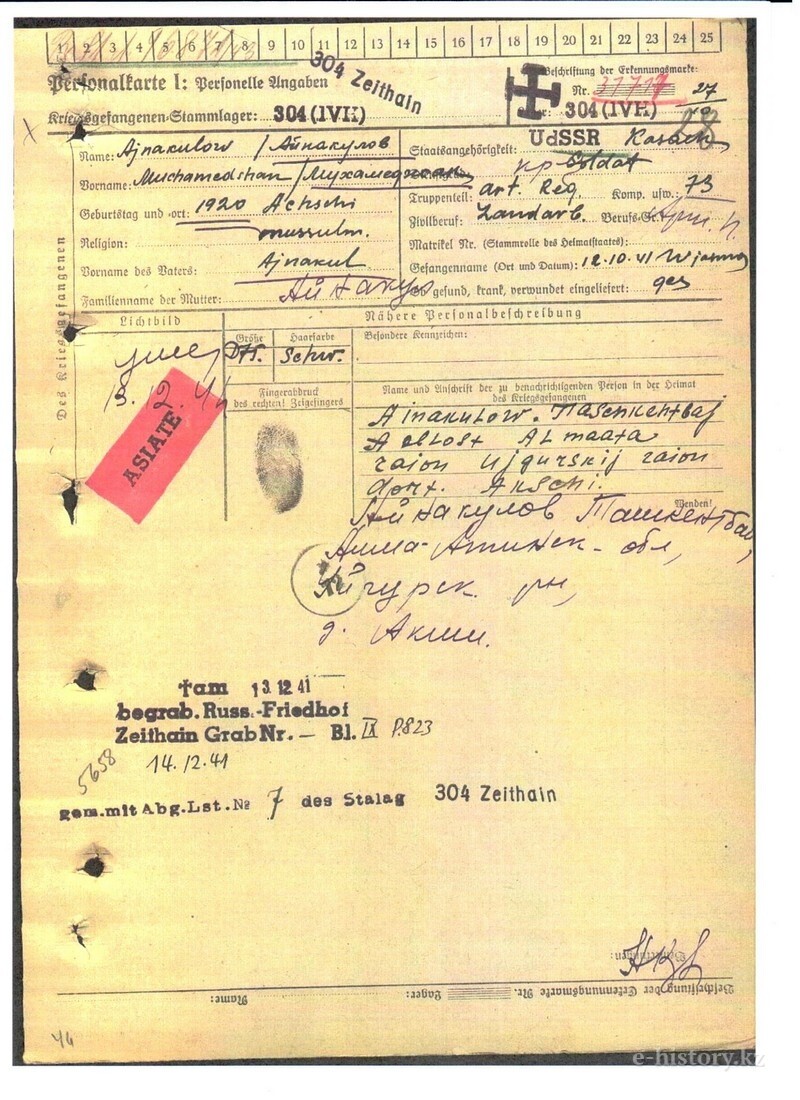 1 2 3 4 5 6 7 8 9 10 11 12 13 14 15 16 17 18 19 20 21 22 23 24 25
304 Zeithain
Personalkarte I: Personelle Angaben
Beschriftung der Erkennungsmarke:
Nr. 31717
27
Kriegsgefangenen-Stammlager: 304 (IVH)
304 (IVH)
28
Des Kriegsgefangenen
Name: Ajnakulow / Айнакулов
Staatsangehörigkeit: UdSSR Kasach
Vorname: Muchamedshan / Мухамеджан
кр Soldat
Geburtstag und -ort: 1920 Achschi
Truppenteil: art. Reg Komp. usw.: 73
Religion: mussulm.
Zivilberuf: Landarb. Berufs-Gr.:
Matrikel Nr. (Stammrolle des Heimatstaates):
Vorname des Vaters: Ajnakul
Gefangenname (Ort und Datum): 12.10.41 Wjasma
Familienname der Mutter: Айнакул
Ob gesund, krank, verwundet eingeliefert: ges
Lichtbild
Nähere Personalbeschreibung
Größe Haarfarbe Besondere Kennzeichen:
Schw.
умер
13.12.41
ASIATE
Fingerabdruck
des rechten! Zeigefingers
Name und Anschrift der zu benachrichtigenden Person in der Heimat
des Kriegsgefangenen
Ainakulow. Taschkentbaj
Oblost Almaata
raion Ujgurskij raion
Akschi.
Wenden!
Айнакулов Ташкентбай
Алма-Атинск. обл,
Уйгурск. рн,
д. Акши.
†am 13.12.41
begrab. Russ.-Friedhof
Zeithain Grab Nr. — Bl. IX P.823
5658
14.12.41
gem. mit Abg. Lst. № 7 des Stalag 304 Zeithain
Bemerkungen:
Beschriftung der Erkennungsmarke Nr. Lager: Name:
e-history.kz